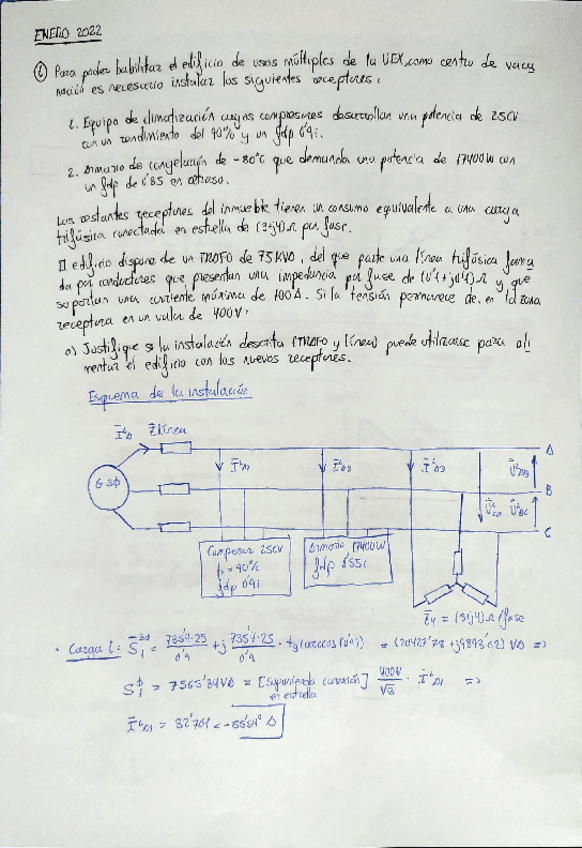 ENERO 2022
① Para poder habilitar el edificio de usos múltiples de la UEX como centro de vacu
nación es necesario instalar los siguientes receptores:
1. Equipo de climatización cuyos compresores desarrollan una potencia de 25CV
con un rendimiento del 90% y un fdp 0'9i.
2. Armario de congelación de -80°C que demanda una potencia de 17400W con
un fdp de 0'85 en retraso.
Los restantes receptores del inmueble tienen un consumo equivalente a una carga
trifásica conectada en estrella de (3+j4)Ω por fase.
El edificio dispone de un TRAFO de 75KVA, del que parte una línea trifásica forma
da por conductores que presentan una impedancia por fase de (0'1+j0'4)Ω y que
soportan una corriente máxima de 100A. Si la tensión permanece de en la zona
receptora en un valor de 400V:
a) Justifique si la instalación descrita (TRAFO y línea) puede utilizarse para ali
mentar el edificio con los nuevos receptores.
Esquema de la instalación
I^L_A Z línea
I^L_A1 I^L_A2 I^L_A3
A
G 3Φ
U^L_AB
B
U^L_CA U^L_BC
C
Compresor 25CV
η = 90%
fdp 0'9i
Armario 17400W
fdp 0'85i
Z_Y = (3+j4)Ω/fase
· Carga 1: S_1^3Φ = 735'4·25/0'9 + j 735'4·25/0'9 · tg(arccos(0'9)) = (20427'78 + j9893'62) VA =>
S_1^Φ = 7565'84VA = [Suponiendo conexión en estrella] 400V/√3 · I^L_A1 =>
I^L_A1 = 32'701 <-55'84° A